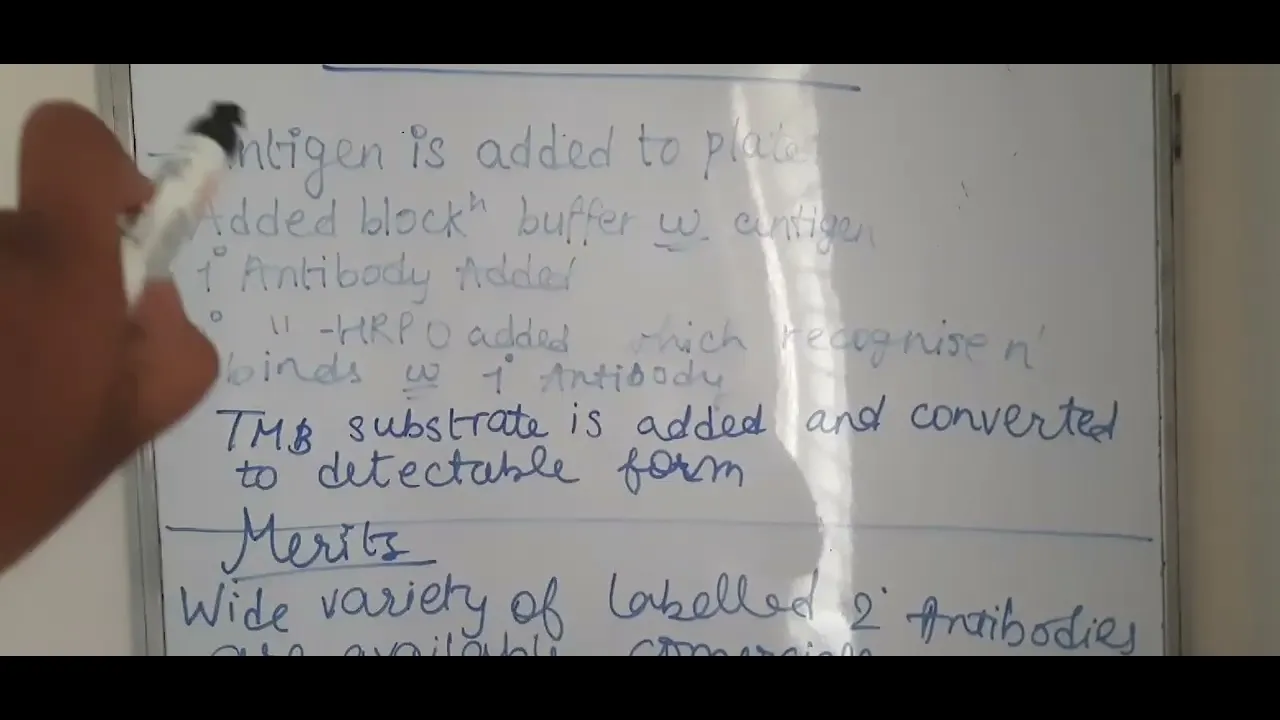 Antigen is added to plate
Added blockⁿ buffer w antigen
1° Antibody Added
° 11 -HRPO added which recognise n'
binds w 1° Antibody
TMB substrate is added and converted
to detectable form
Merits
Wide variety of labelled 2° Antibodies
are available